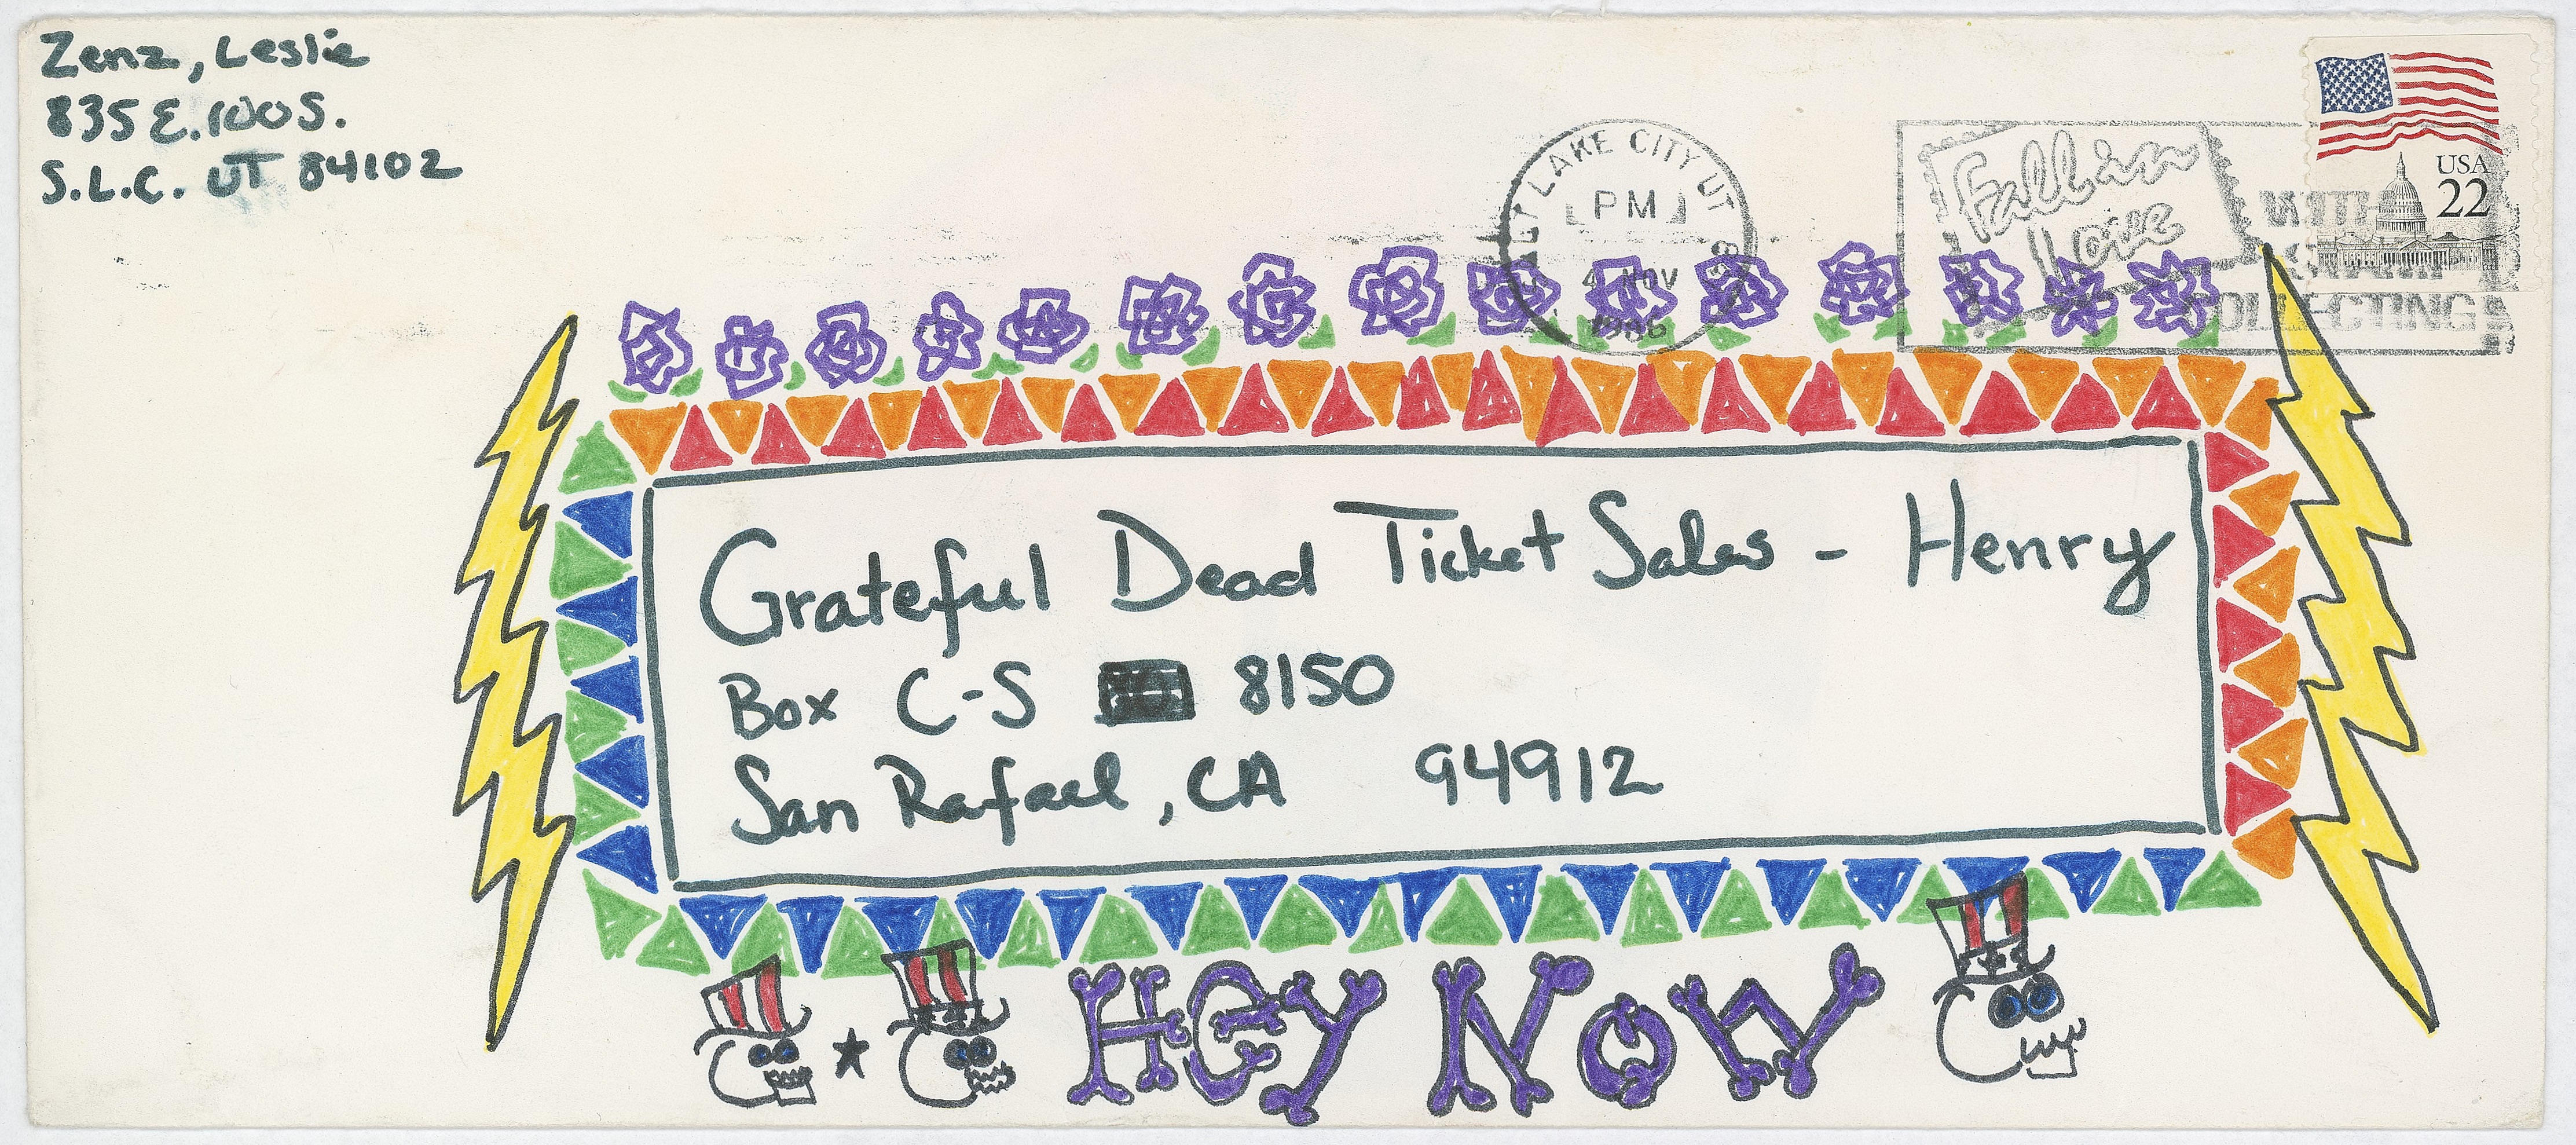 Zenz, Leslie
835 E. 100 S.
S.L.C. UT 84102
SALT LAKE CITY UT 841
PM
4 NOV
1986
Fall in
love
WITH
STAMP
COLLECTING
USA
22
Grateful Dead Ticket Sales - Henry
Box C-S 8150
San Rafael, CA 94912
HEY NOW